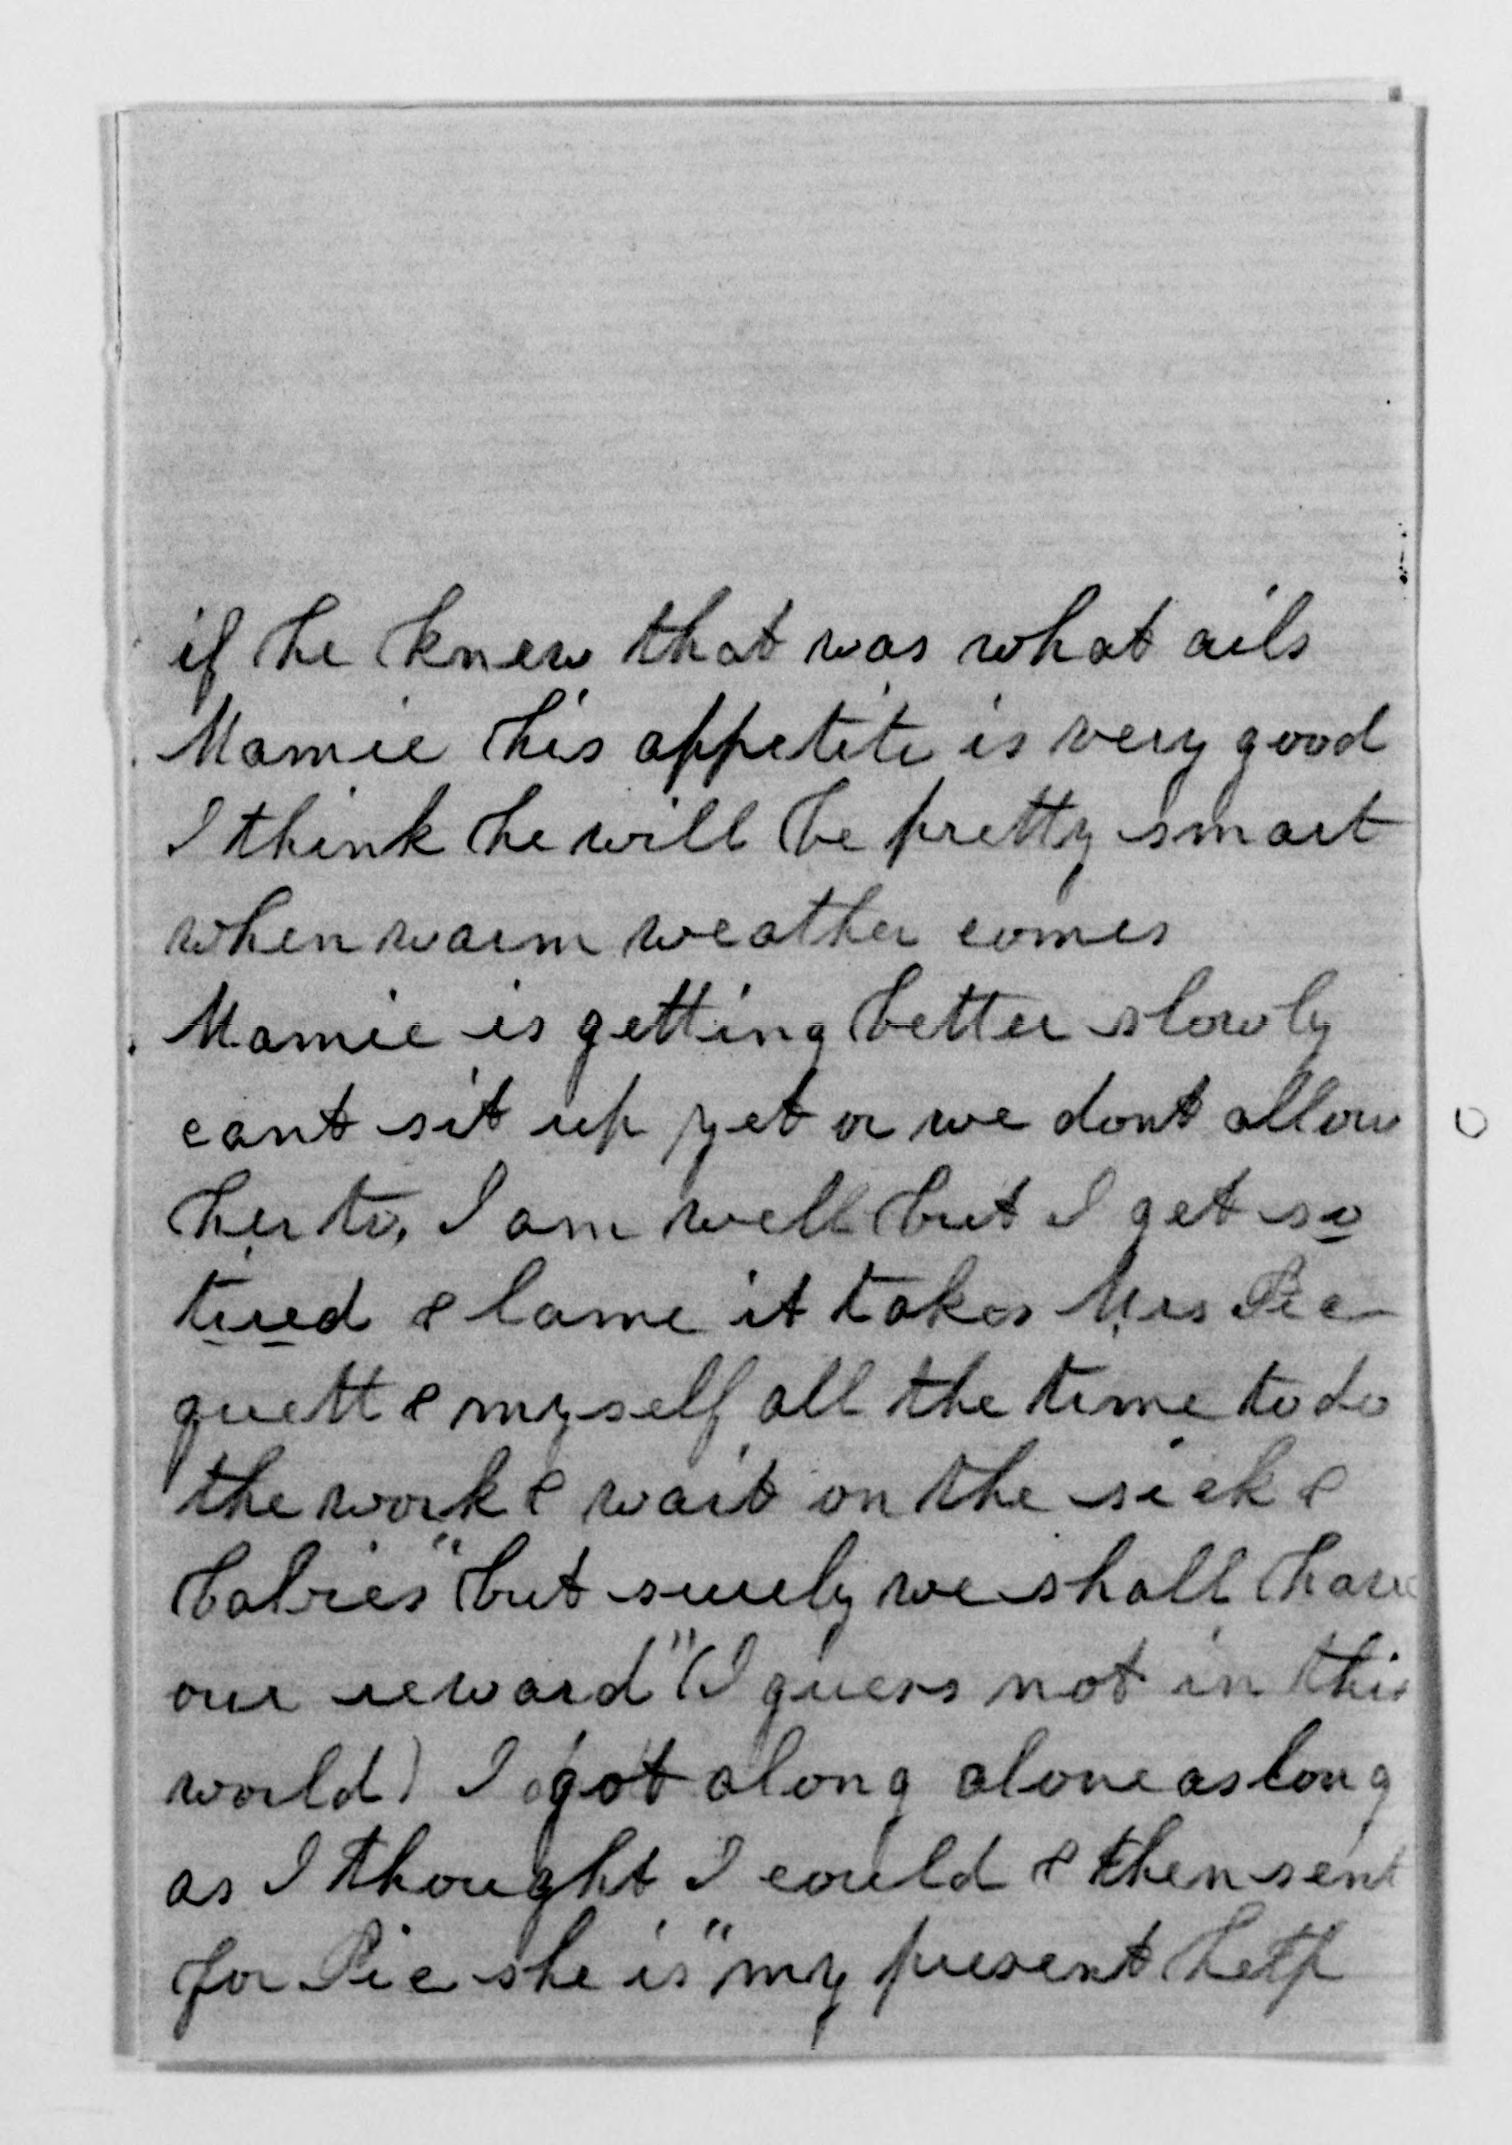 if he knew that was what ails
Mamie his appetite is very good
I think he will be pretty smart
when warm weather comes
Mamie is getting better slowly
cant sit up yet or we dont allow
her to, I am well but I get so
tired & lame it takes Mrs Pic
quett & myself all the time to do
the work & wait on the sick &
babies "but surely we shall have
our reward" (I guess not in this
world) I got along alone as long
as I thought I could & then sent
for Pic she is "my present help